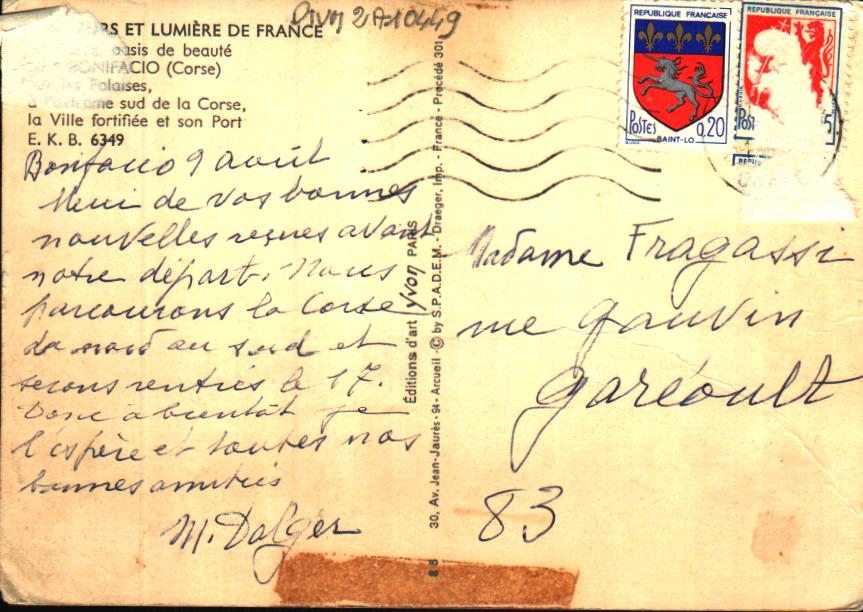 Yvon 2A10449
URS ET LUMIÈRE DE FRANCE
oasis de beauté
BONIFACIO (Corse)
Falaises,
sud de la Corse,
la Ville fortifiée et son Port
E. K. B. 6349
Bonifacio 9 août
Merci de vos bonnes
nouvelles reçues avant
notre départ. Nous
parcourons la Corse
du nord au sud et
serons rentrés le 17.
Donc à bientôt je
l'espère et toutes nos
bonnes amitiés
M. Dolger
Éditions d'art Yvon PARIS
30, Av. Jean-Jaurès - 94 - Arcueil - © by S.P.A.D.E.M. - Draeger, Imp. - France - Procédé 301
REPUBLIQUE FRANÇAISE
POSTES 0,20
SAINT-LO
REPUBLIQUE FRANÇAISE
5
Madame Fragassi
rue Gauvin
Garéoult
83